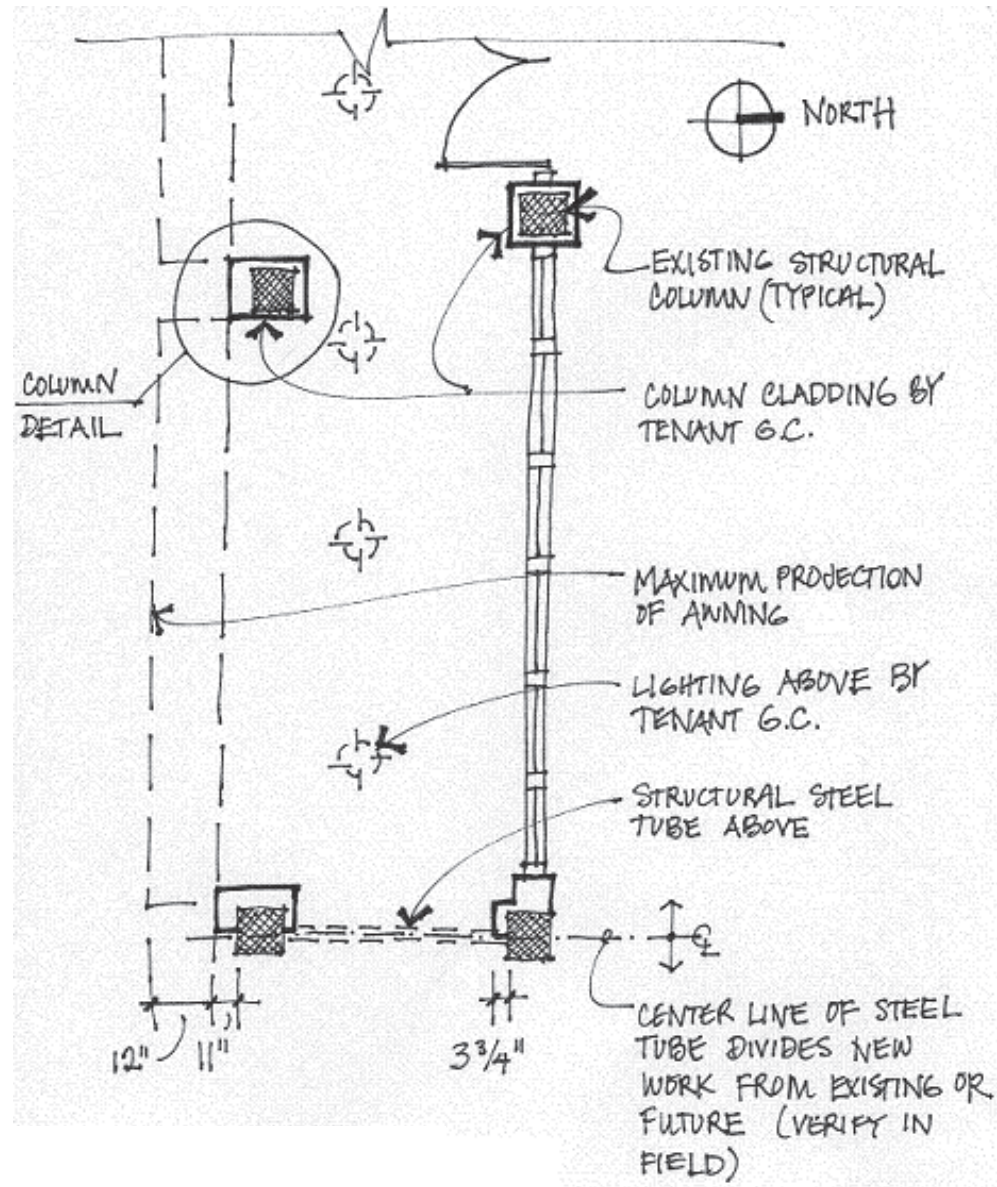 NORTH
EXISTING STRUCTURAL
COLUMN (TYPICAL)
COLUMN
DETAIL
COLUMN CLADDING BY
TENANT G.C.
MAXIMUM PROJECTION
OF AWNING
LIGHTING ABOVE BY
TENANT G.C.
STRUCTURAL STEEL
TUBE ABOVE
℄
12" 11" 3 3/4"
CENTER LINE OF STEEL
TUBE DIVIDES NEW
WORK FROM EXISTING OR
FUTURE (VERIFY IN
FIELD)